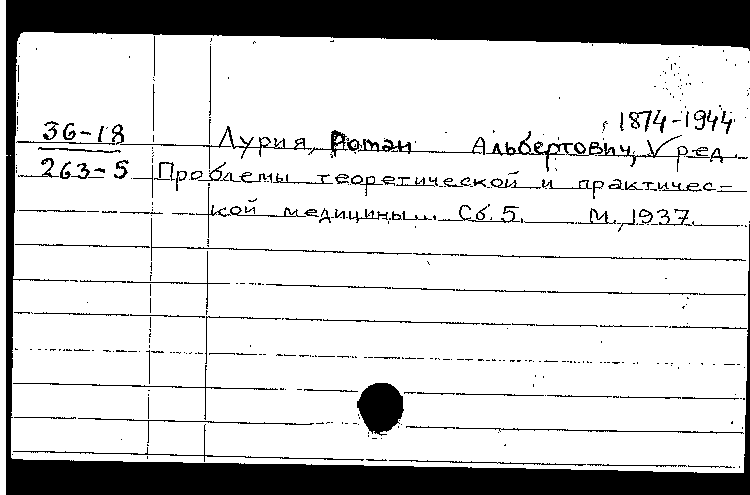 1874-1944
36-18 Лурия, Роман Альбертович, ред.
263-5 Проблемы теоретической и практичес-
кой медицины... Сб. 5. М., 1937.